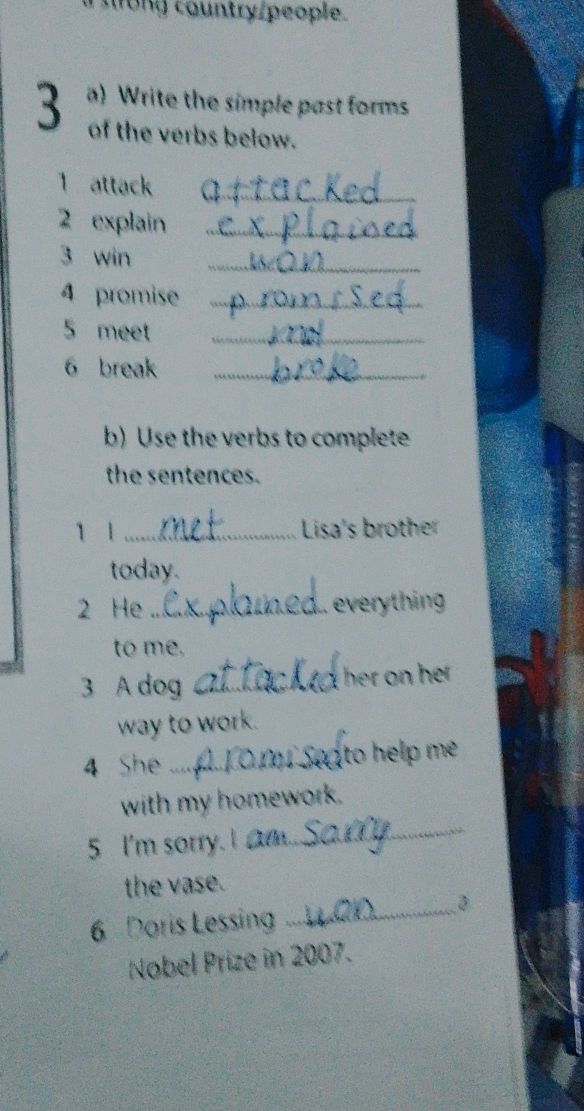 a strong country/people.
3 a) Write the simple past forms
of the verbs below.
1 attack attacked
2 explain explained
3 win won
4 promise promised
5 meet met
6 break broke
b) Use the verbs to complete
the sentences.
1 I met Lisa's brother
today.
2 He explained everything
to me.
3 A dog attacked her on her
way to work.
4 She promised to help me
with my homework.
5 I'm sorry. I am sarry
the vase.
6 Doris Lessing won a
Nobel Prize in 2007.